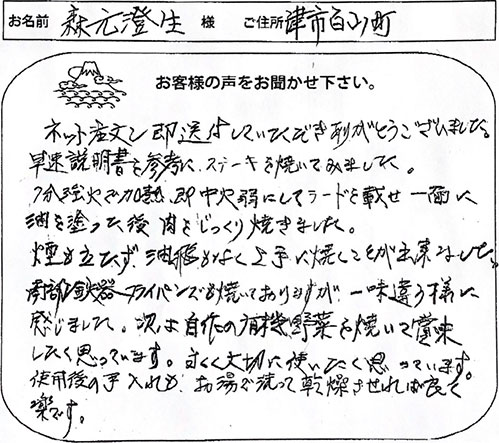 お名前 森元澄生 様 ご住所 津市白山町
お客様の声をお聞かせ下さい。
ネット注文し即送付していただき有りがとうございました。
早速説明書を参考に、ステーキを焼いてみました。
7分強火で加熱、即中火弱にしてラードを載せ一面に
油を塗った後肉をじっくり焼きました。
煙も立たず、油飛もなく上手に焼くことが出来ました。
南部鉄器フライパンでも焼いておりますが、一味違う様に
感じました。次は自作の有機野菜を焼いて賞味
したく思っています。永く大切に使いたく思っています。
使用後の手入れも、お湯で洗って乾燥させれば良く
楽です。